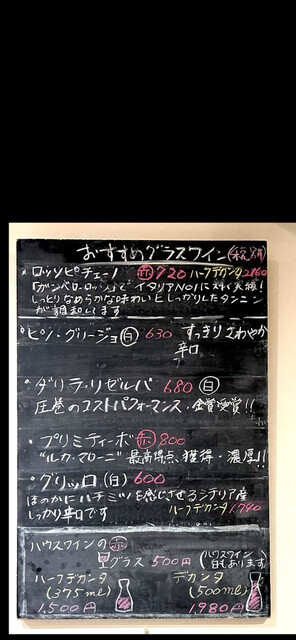 おすすめグラスワイン(税別)
・ロッソピチェーノ (赤) 720 ハーフデカンタ2160
「ガンベロ・ロッソ」で イタリアNO1に 輝く実績!
しっとりなめらかな味わいとしっかりしたタンニン
が調和してます
・ピノ・グリージョ(白) 630 すっきりさわやか
辛口
・ダリラ・リゼルバ 680 (白)
圧巻のコストパフォーマンス・金賞受賞!!
・プリミティーボ(赤) 800
"ルカ・マローニ" 最高得点、獲得・濃厚!!
・グリッロ(白) 600
ほのかにハチミツを感じさせるシチリア産
しっかり辛口です ハーフデカンタ1740
ハウスワインの(赤)
グラス 500円 (ハウスワイン
白もあります)
ハーフデカンタ デカンタ
(375ml) (500ml)
1.500円 1980円